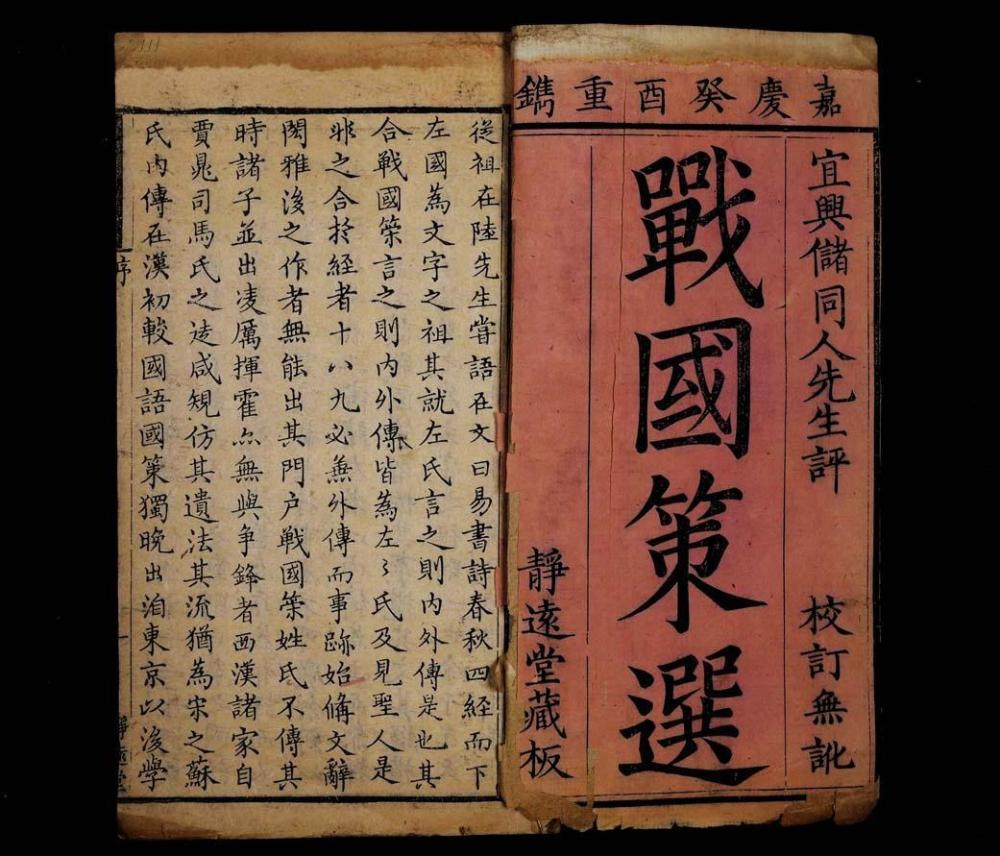 嘉慶癸酉重鐫
宜興儲同人先生評 校訂無訛
戰國策選
靜遠堂藏板
從祖在陸先生嘗語在文曰易書詩春秋四經而下
左國為文字之祖其就左氏言之則內外傳是也其
合戰國策言之則內外傳皆為左〻氏及見聖人是
非之合於經者十八九必無外傳而事跡始備文辭
閎雅後之作者無能出其門戶戰國策姓氏不傳其
時諸子並出凌厲揮霍尒無與争鋒者西漢諸家自
賈晁司馬氏之徒咸規仿其遺法其流猶為宋之蘇
氏內傳在漢初較國語國策獨晚出洎東京以後學
序
一
靜遠堂